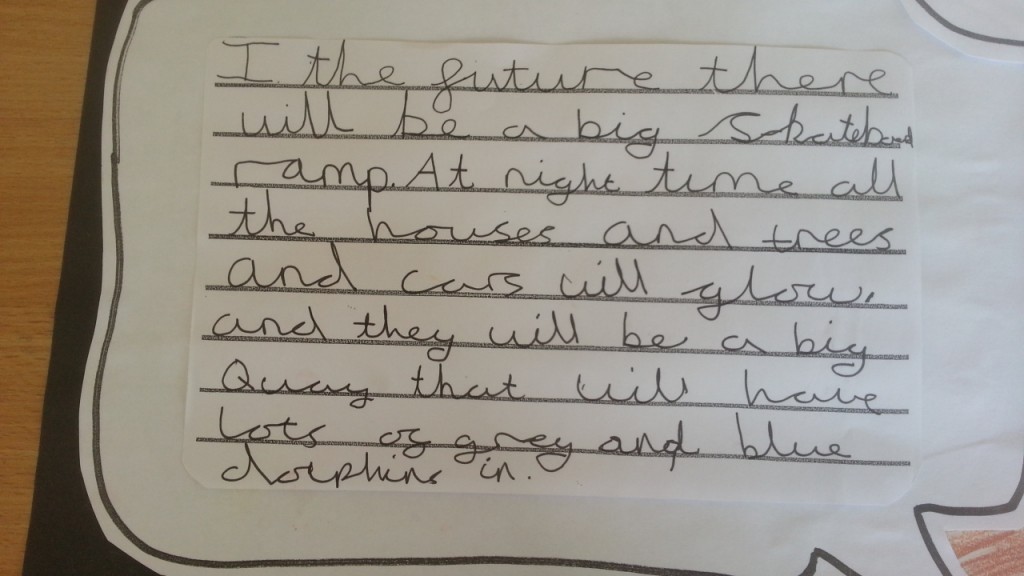 I the future there
will be a big skateboard
ramp. At night time all
the houses and trees
and cars will glow.
and they will be a big
Quay that will have
lots of grey and blue
dolphins in.